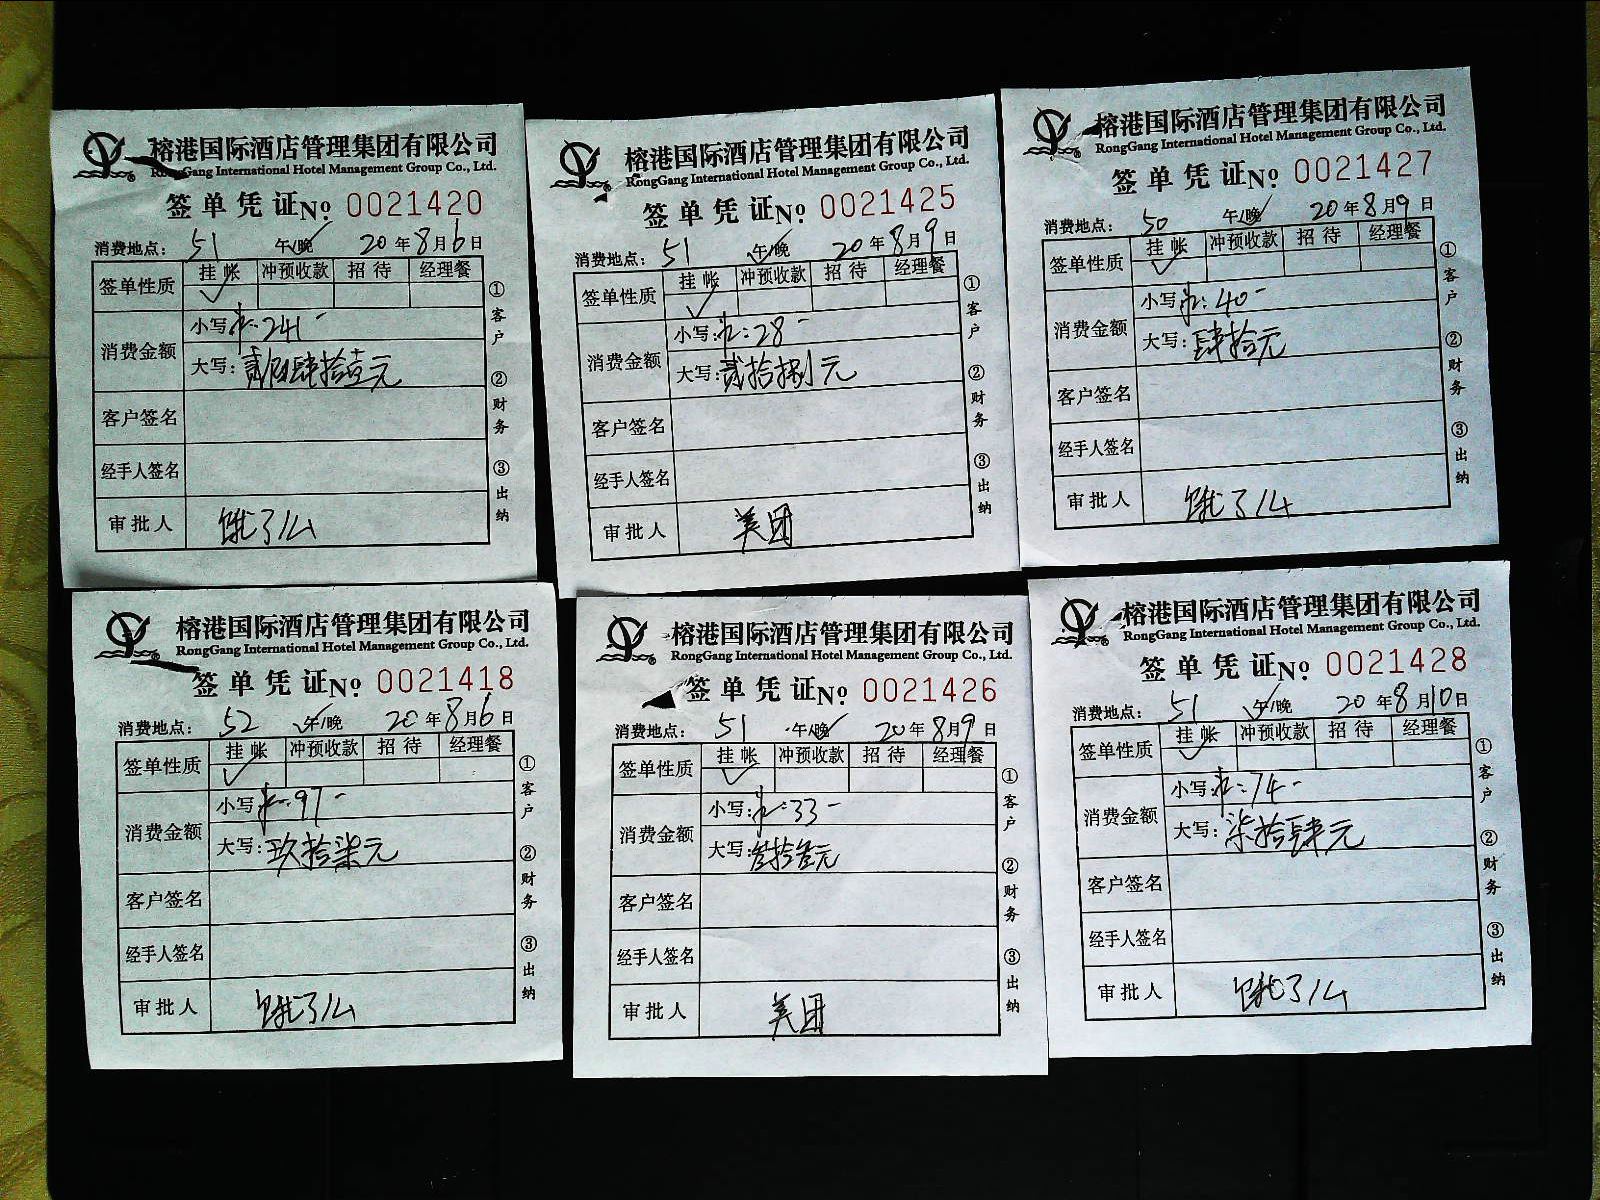 榕港国际酒店管理集团有限公司
RongGang International Hotel Management Group Co., Ltd.
签单凭证 No 0021420
消费地点: 51 午/晚 20年8月6日
签单性质 挂帐 冲预收款 招待 经理餐
✓
消费金额 小写: 241-
大写: 贰佰肆拾壹元
客户签名
经手人签名
审批人 饿了么
①客户 ②财务 ③出纳
榕港国际酒店管理集团有限公司
RongGang International Hotel Management Group Co., Ltd.
签单凭证 No 0021425
消费地点: 51 午/晚 20年8月9日
签单性质 挂帐 冲预收款 招待 经理餐
✓
消费金额 小写: 28-
大写: 贰拾捌元
客户签名
经手人签名
审批人 美团
①客户 ②财务 ③出纳
榕港国际酒店管理集团有限公司
RongGang International Hotel Management Group Co., Ltd.
签单凭证 No 0021427
消费地点: 50 午/晚 20年8月9日
签单性质 挂帐 冲预收款 招待 经理餐
✓
消费金额 小写: 40-
大写: 肆拾元
客户签名
经手人签名
审批人 饿了么
①客户 ②财务 ③出纳
榕港国际酒店管理集团有限公司
RongGang International Hotel Management Group Co., Ltd.
签单凭证 No 0021418
消费地点: 52 午/晚 20年8月6日
签单性质 挂帐 冲预收款 招待 经理餐
✓
消费金额 小写: 97-
大写: 玖拾柒元
客户签名
经手人签名
审批人 饿了么
①客户 ②财务 ③出纳
榕港国际酒店管理集团有限公司
RongGang International Hotel Management Group Co., Ltd.
签单凭证 No 0021426
消费地点: 51 午/晚 20年8月9日
签单性质 挂帐 冲预收款 招待 经理餐
✓
消费金额 小写: 33-
大写: 叁拾叁元
客户签名
经手人签名
审批人 美团
①客户 ②财务 ③出纳
榕港国际酒店管理集团有限公司
RongGang International Hotel Management Group Co., Ltd.
签单凭证 No 0021428
消费地点: 51 午/晚 20年8月10日
签单性质 挂帐 冲预收款 招待 经理餐
✓
消费金额 小写: 74-
大写: 柒拾肆元
客户签名
经手人签名
审批人 饿了么
①客户 ②财务 ③出纳